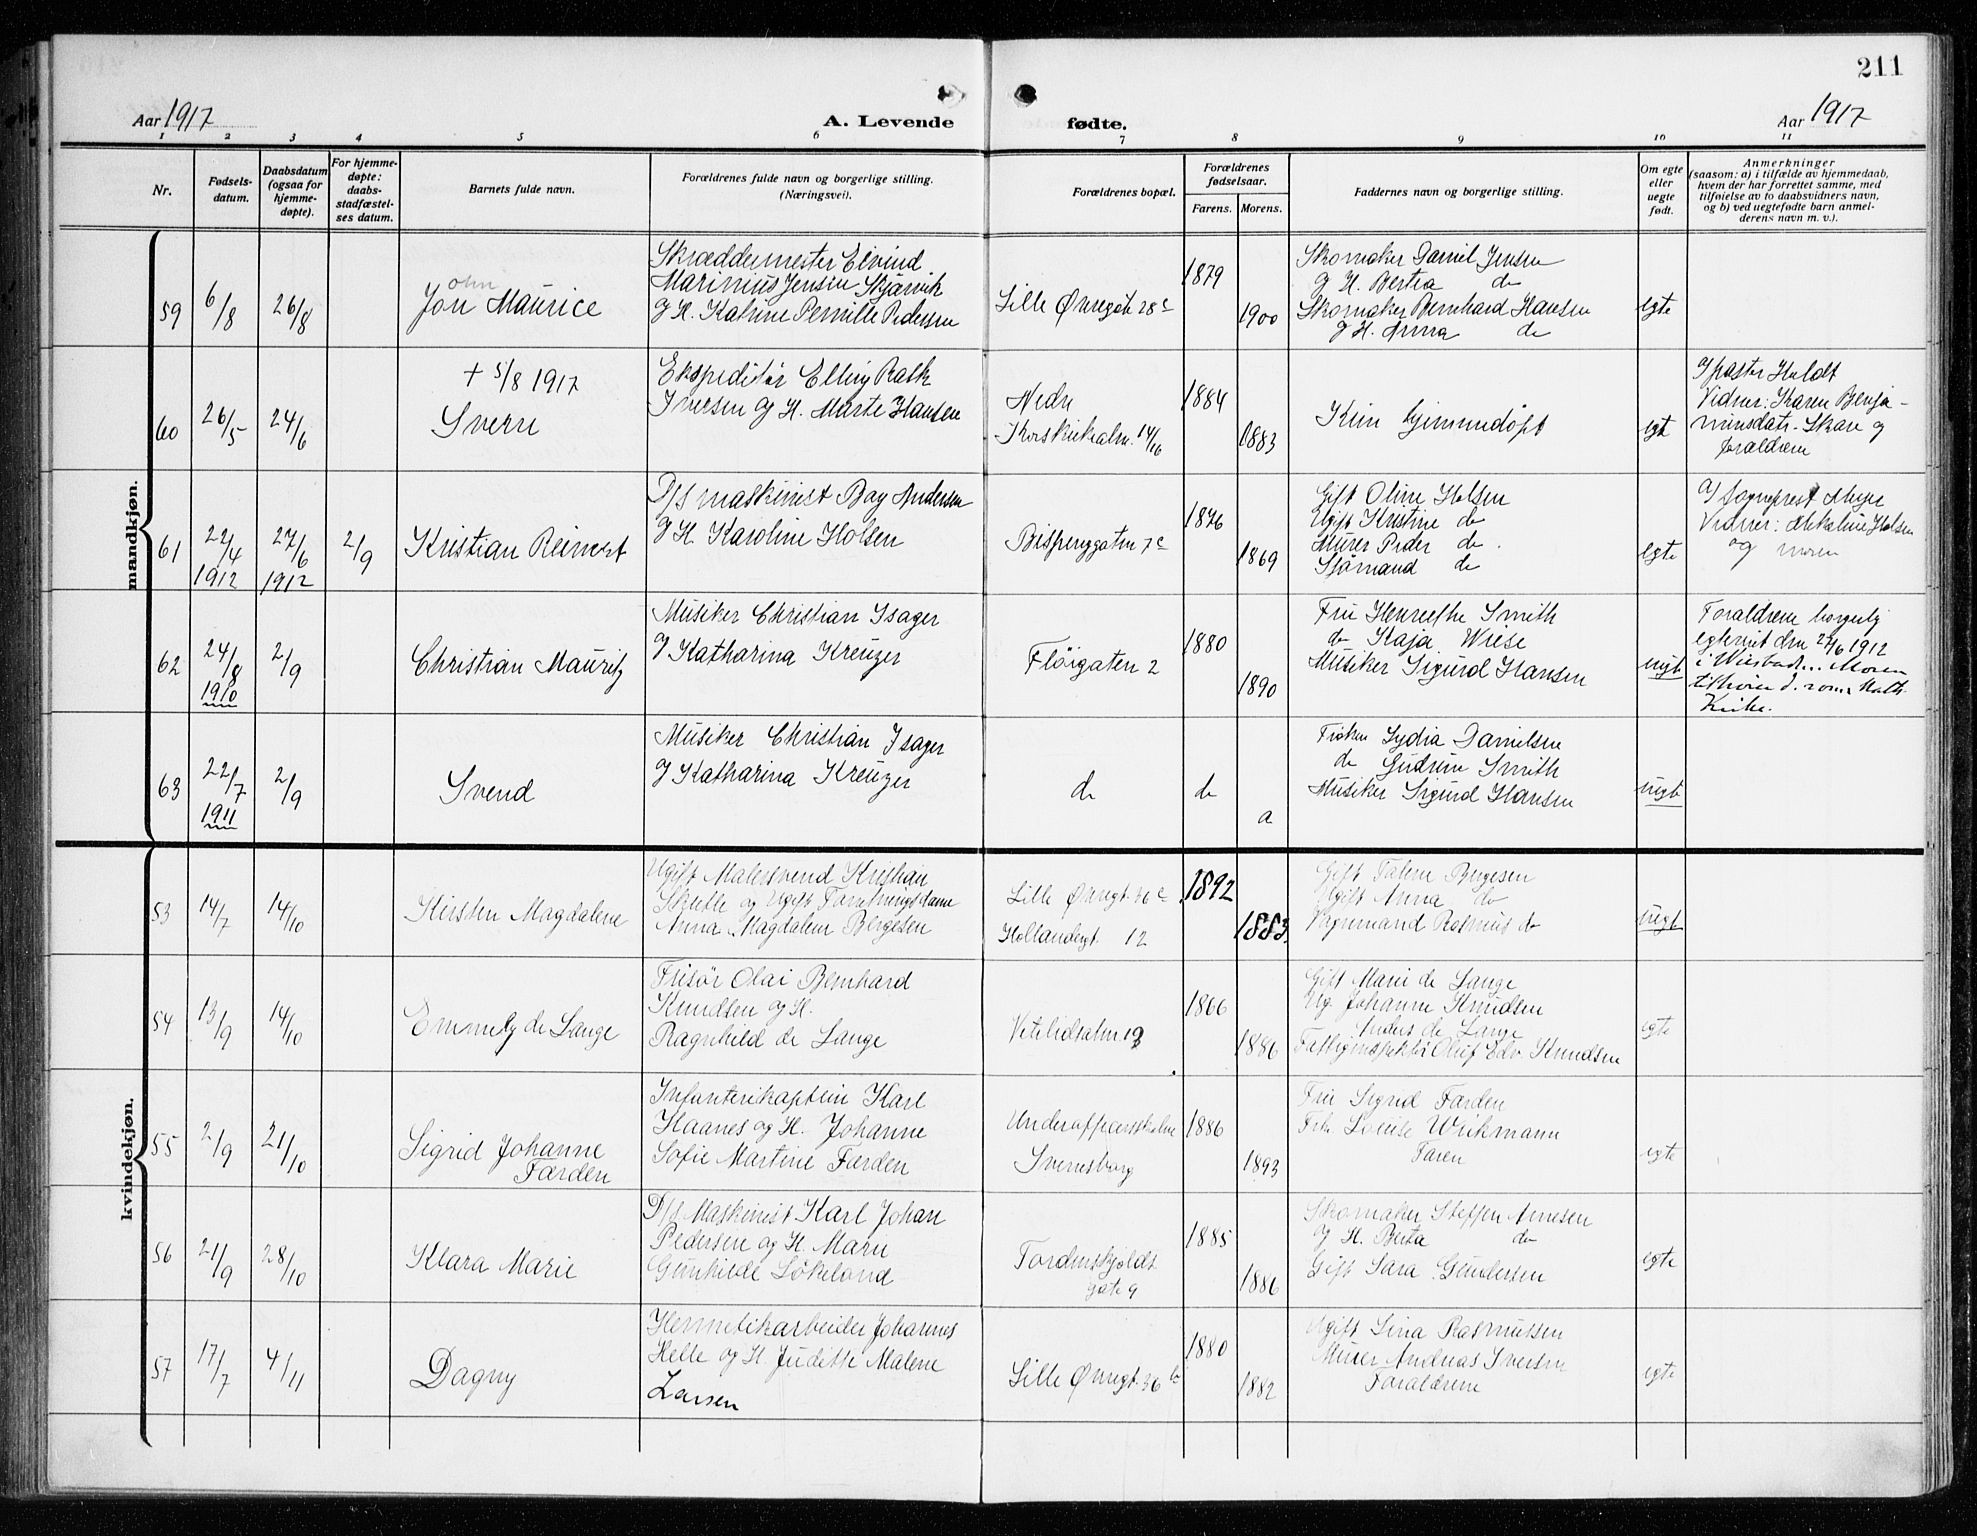 211
Aar 1917
A. Levende
fødte.
Aar 1917
1 2 3 4 5 6 7 8 9 10 11
Nr.
Fødsels-
datum.
Daabsdatum
(ogsaa for
hjemme-
døpte).
For hjemme-
døpte:
daabs-
stadfæstel-
ses datum.
Barnets fulde navn.
Forældrenes fulde navn og borgerlige stilling.
(Næringsvei).
Forældrenes bopæl.
Forældrenes
fødselsaar.
Farens. Morens.
Faddernes navn og borgerlige stilling.
Om egte
eller
uegte
født.
Anmerkninger
(saasom: a) i tilfælde av hjemmedaab,
hvem der har forrettet samme, med
tilføielse av to daabsvidners navn,
og b) ved uegtefødte barn anmel-
derens navn m. v.).
mandkjøn.
59
6/8
26/8
ohn
Jon Maurice
Skræddermester Eivind
Marinius Jensen Skjärvik
og H. Katrine Pernille Pedersen
Lille Øvregate 28c
1879
1900
Skomaker Daniel Jensen
og H. Berta do
Skomaker Bernhard Hansen
og H. Anna do
egte
60
26/5
24/6
+ 5/8 1917
Sverre
Ekspeditør Elling Ratk
Iversen og H. Marte Hansen
Nedre
Korskirkealm. 14/16
1884
1883
Kun hjemmedøpt
egt
af pastor Holdt
Vidner: Karen Benja-
minsdatr. Skare og
forældrene
61
22/4
1912
27/6
1912
2/9
Kristian Reinert
D/S maskinist Bay Andersen
og H. Karoline Holsen
Bispenggaten 7c
1876
1869
Gift Oline Holsen
Ugift Kristine do
Murer Peder do.
Sjømand do
egte
af sogneprest Meyer
Vidner: Mikaline Holsen
og moren
62
24/8
1910
2/9
Christian Mauritz
Musiker Christian Isager
og Katharina Kreuzer
Fløigaten 2
1880
1890
Fru Henriette Smith
do Kaja Wiese
Musiker Sigurd Hansen
uegt
Forældrene borgerlig
egteviet den 27/6 1912
i Wiesbad... Moren
tilhører d. rom. Kath.
Kirke.
63
22/7
1911
2/9
Svend
Musiker Christian Isager
og Katharina Kreuzer
do
do
do
Frøken Lydia Danielsen
do Gudrun Smith
Musiker Sigurd Hansen
uegt
kvindekjøn.
53
14/7
14/10
Kirsten Magdalene
Ugift Malersvend Kristian
Skulle og Ugift Forretningsdame
Anna Magdalene Bergesen
Lille Øvregt. 36c
Hollendergt. 12
1892
1883
Gift Talene Bergesen
Ugift Anna do
Vognmand Rasmus do
uegt
54
13/9
14/10
Emmely de Lange
Frisør Olai Bernhard
Knudsen og H.
Ragnhild de Lange
Vetrlidsalm. 13
1866
1886
Gift Marie de Lange
Ug. Johanne Knudsen
Anders de Lange
Fattiginspektør Oluf Edv. Knudsen
egte
55
2/9
21/10
Sigrid Johanne
Færden
Infanterikaptein Karl
Haanes og H. Johanne
Sofie Martine Færden
Underofficersskolen
Sverresborg
1886
1893
Fru Sigrid Færden
Frk. Louise Wikmann
Faren
egte
56
21/9
28/10
Klara Marie
D/S Maskinist Karl Johan
Pedersen og H. Marie
Gunhilde Løkeland
Tordenskjolds
gate 9
1885
1886
Skomaker Steffen Arnesen
og H. Berta do
Gift Sara Gundersen
egte
57
17/7
4/11
Dagny
Hermetikarbeider Johannes
Helle og H. Juditte Malene
Larsen
Lille Øvregt. 36 b
1880
1882
Ugift Lina Rasmussen
Murer Andreas Iversen
Forældrene
egte